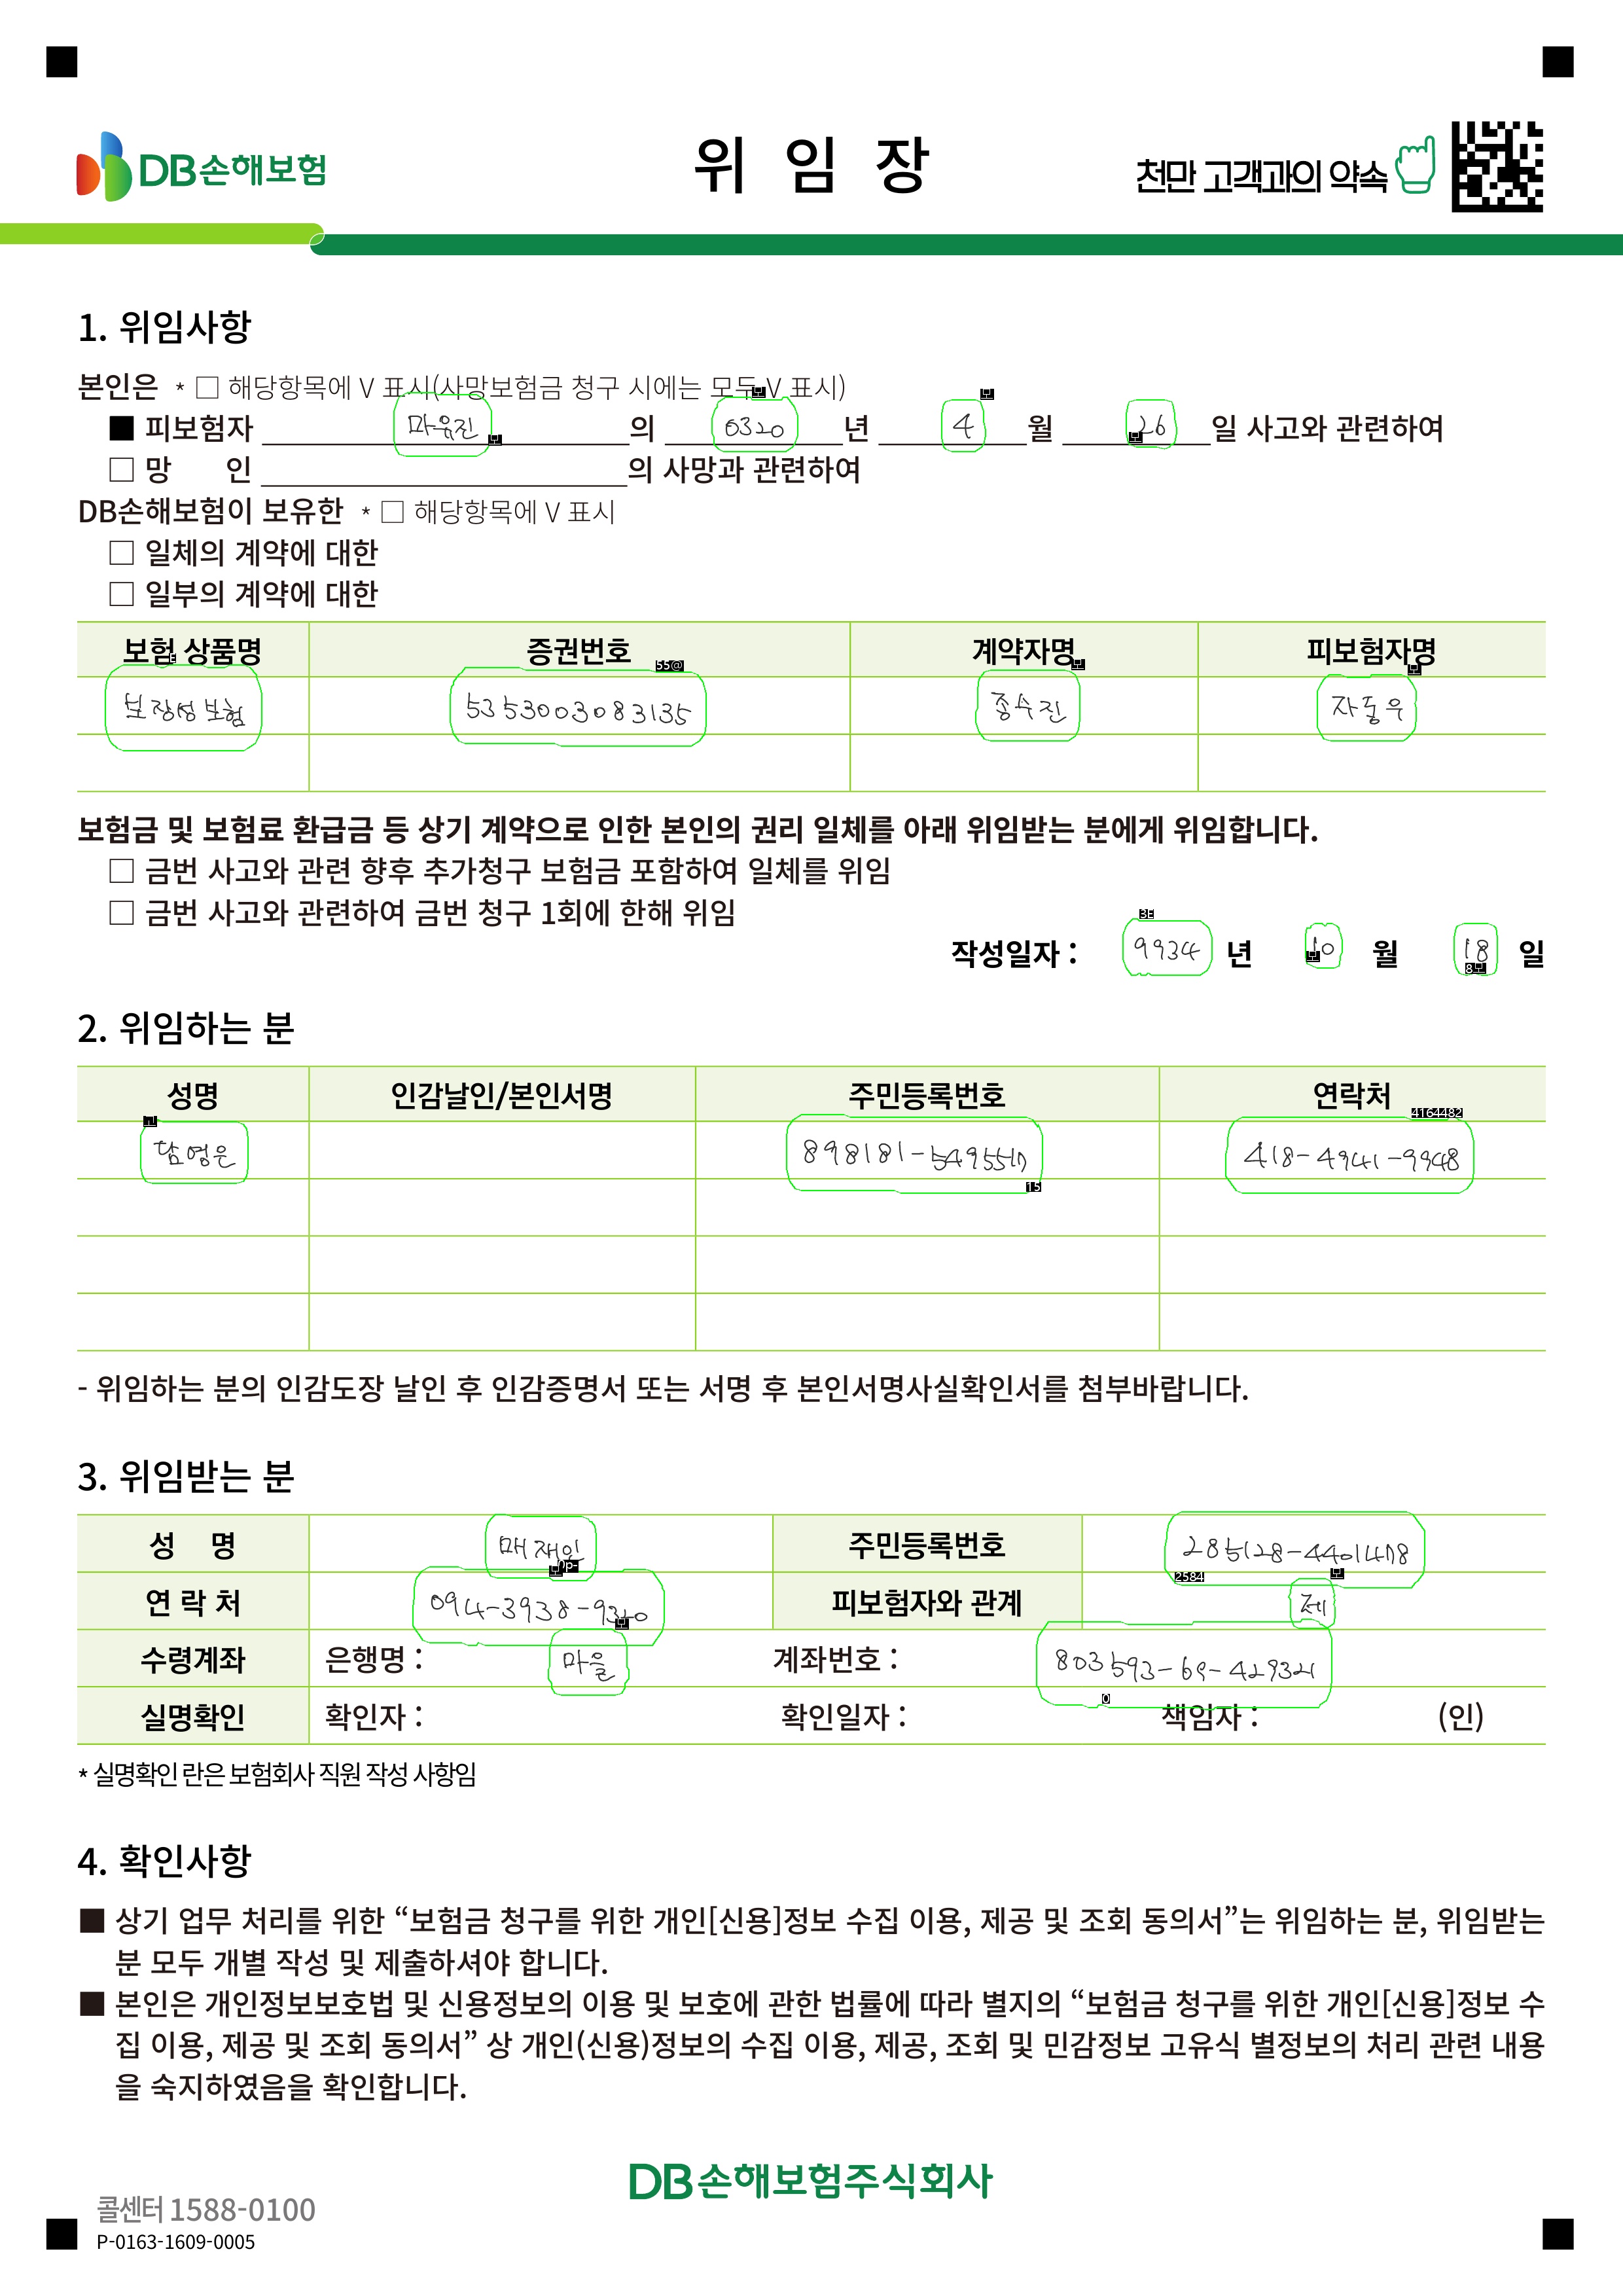 DB손해보험
위 임 장
천만 고객과의 약속
1. 위임사항
본인은 * □ 해당항목에 V 표시(사망보험금 청구 시에는 모두 V 표시)
■ 피보험자 마윤진 의 0320 년 4 월 26 일 사고와 관련하여
□ 망 인 의 사망과 관련하여
DB손해보험이 보유한 * □ 해당항목에 V 표시
□ 일체의 계약에 대한
□ 일부의 계약에 대한
보험 상품명 증권번호 계약자명 피보험자명
보장성보험 5353003083135 종수진 자동우
보험금 및 보험료 환급금 등 상기 계약으로 인한 본인의 권리 일체를 아래 위임받는 분에게 위임합니다.
□ 금번 사고와 관련 향후 추가청구 보험금 포함하여 일체를 위임
□ 금번 사고와 관련하여 금번 청구 1회에 한해 위임
작성일자 : 9934 년 10 월 18 일
2. 위임하는 분
성명 인감날인/본인서명 주민등록번호 연락처
담영은 418-4941-9948
- 위임하는 분의 인감도장 날인 후 인감증명서 또는 서명 후 본인서명사실확인서를 첨부바랍니다.
3. 위임받는 분
성 명 매재인 주민등록번호 285128-4401478
연 락 처 094-3938-9320 피보험자와 관계 제
수령계좌 은행명 : 마을 계좌번호 : 803593-69-429321
실명확인 확인자 : 확인일자 : 책임자 : (인)
* 실명확인 란은 보험회사 직원 작성 사항임
4. 확인사항
■ 상기 업무 처리를 위한 “보험금 청구를 위한 개인[신용]정보 수집 이용, 제공 및 조회 동의서”는 위임하는 분, 위임받는
분 모두 개별 작성 및 제출하셔야 합니다.
■ 본인은 개인정보보호법 및 신용정보의 이용 및 보호에 관한 법률에 따라 별지의 “보험금 청구를 위한 개인[신용]정보 수
집 이용, 제공 및 조회 동의서” 상 개인(신용)정보의 수집 이용, 제공, 조회 및 민감정보 고유식 별정보의 처리 관련 내용
을 숙지하였음을 확인합니다.
DB손해보험주식회사
콜센터 1588-0100
P-0163-1609-0005